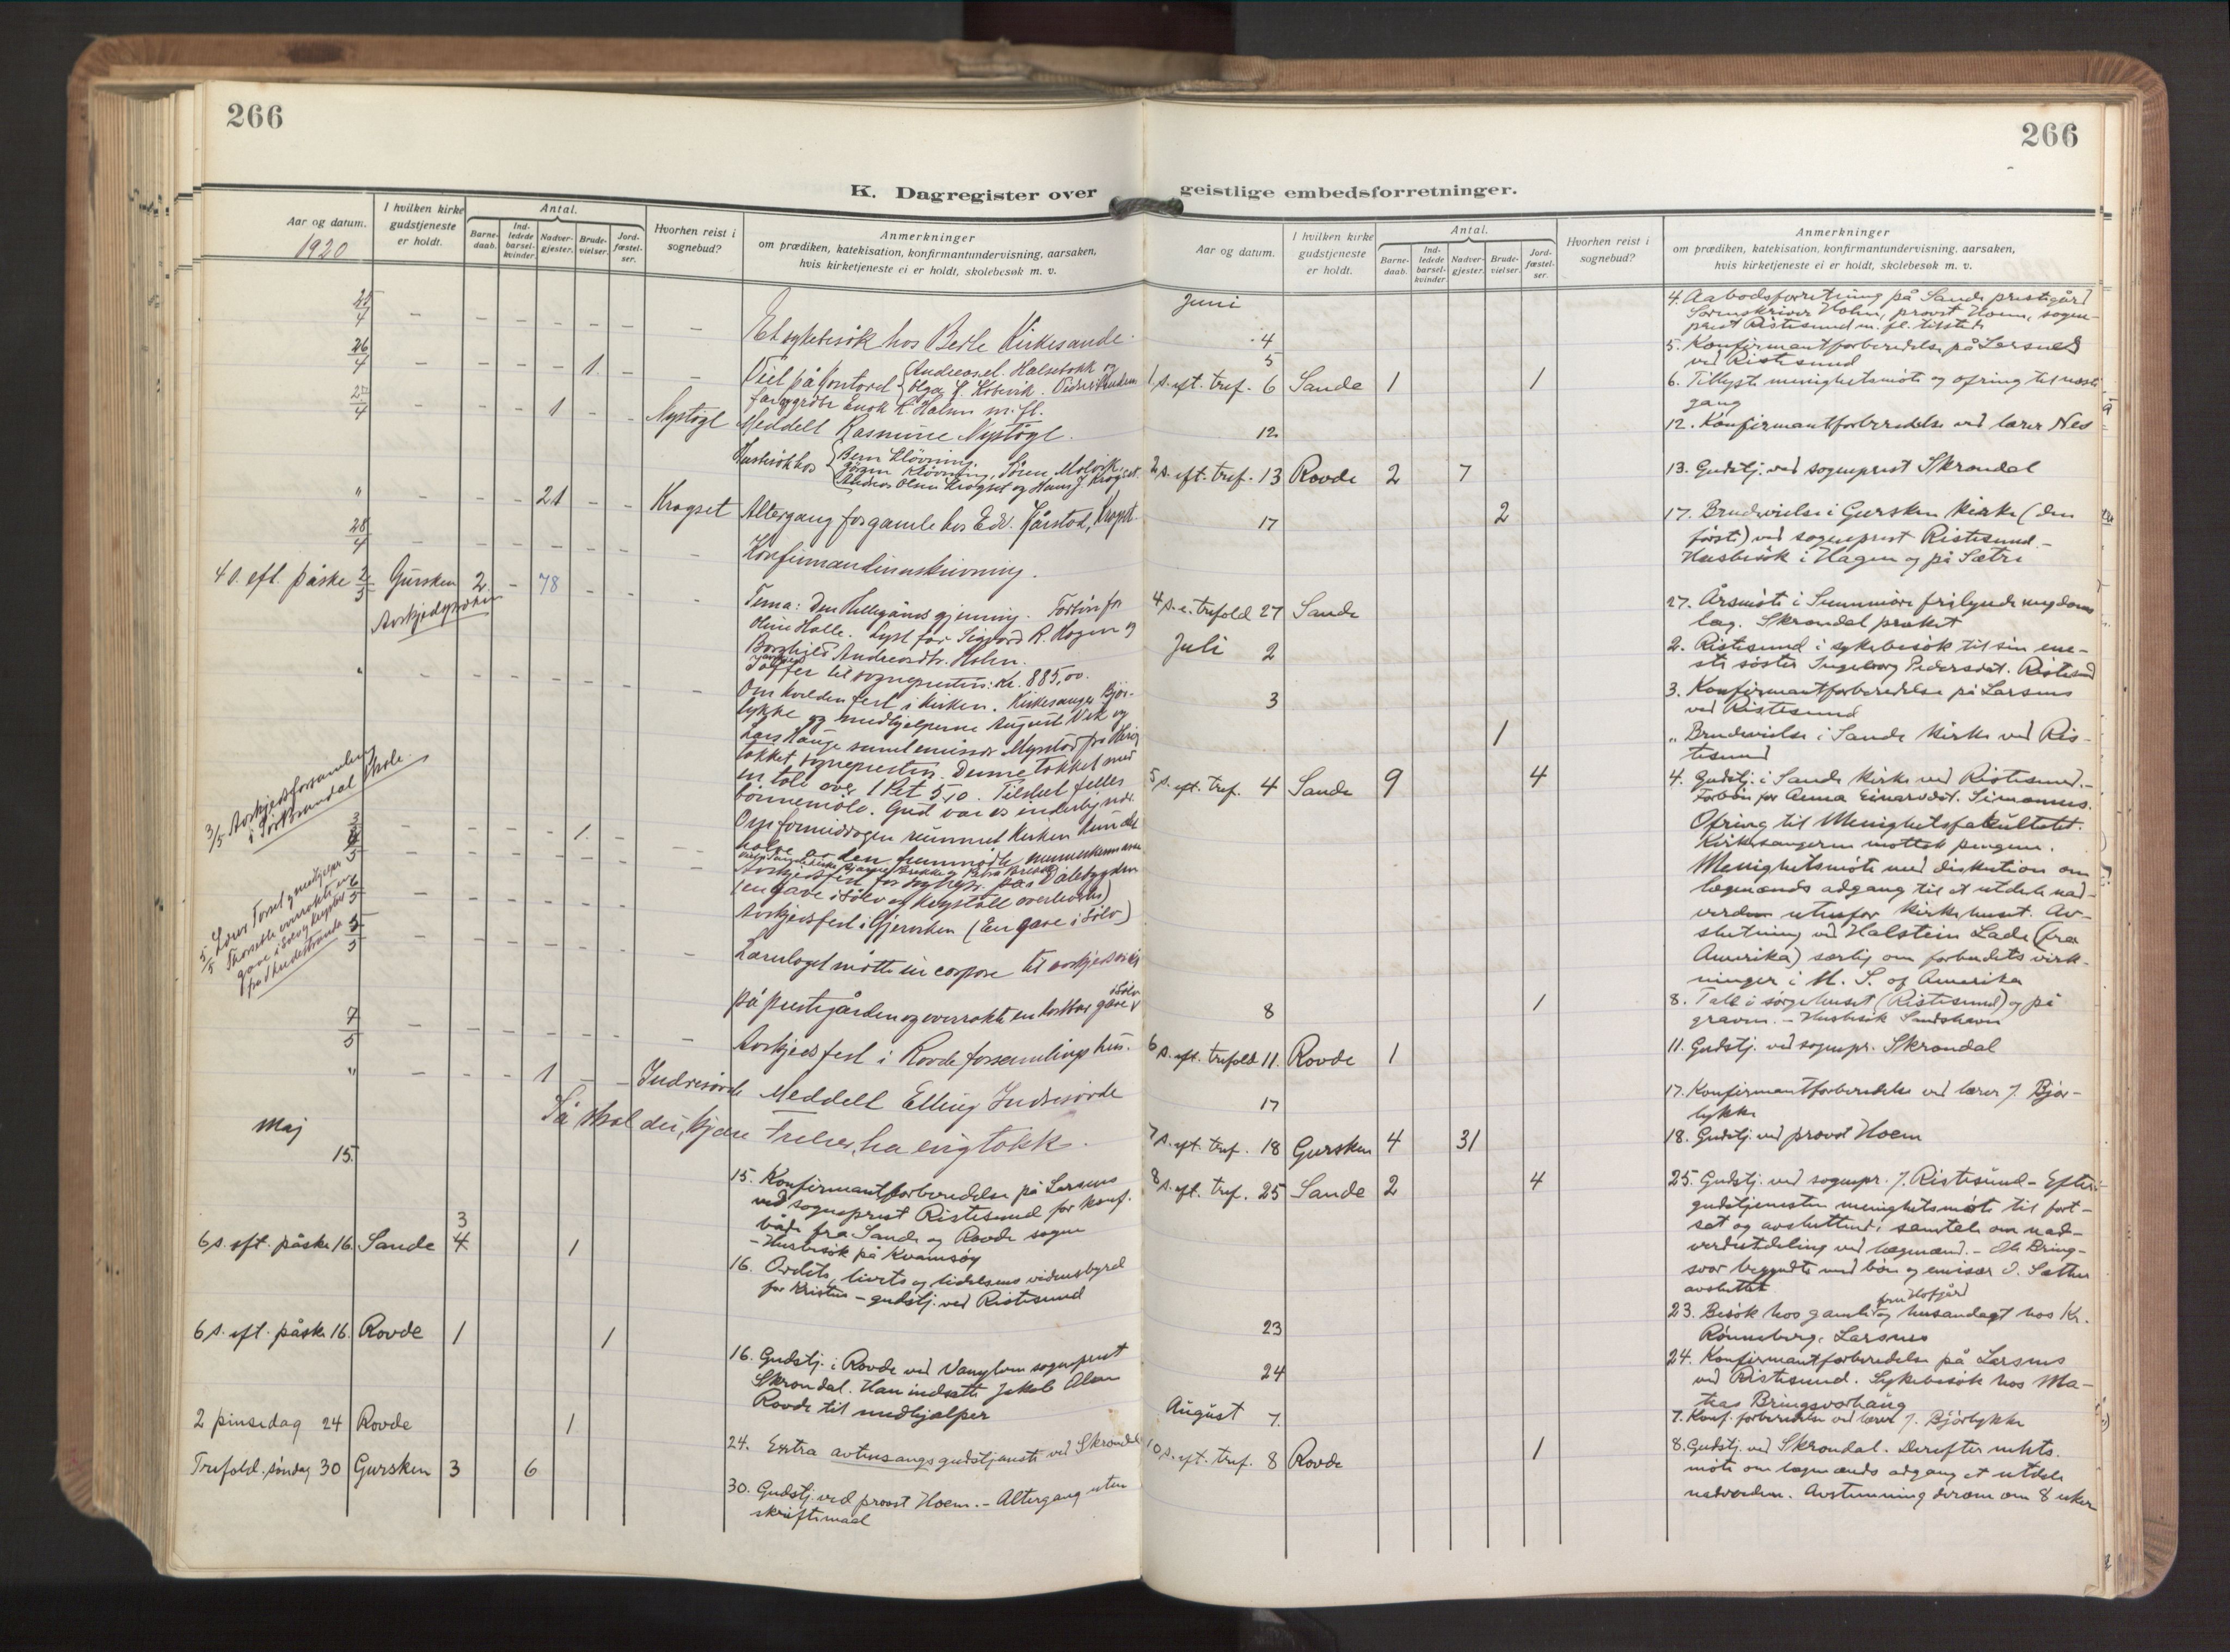 266
K. Dagregister over
Aar og datum.
1920
I hvilken kirke
gudstjeneste
er holdt.
Antal.
Barne-
daab.
Ind-
ledede
barsel-
kvinder.
Nadver-
gjester.
Brude-
vielser.
Jord-
fæstel-
ser.
Hvorhen reist i
sognebud?
Anmerkninger
om prædiken, katekisation, konfirmantundervisning, aarsaken,
hvis kirketjeneste ei er holdt, skolebesøk m. v.
25/4 Et sykebesøk hos Berte Kirkesande.
26/4 1 Viet på kontoret Andreas
Olga
Enok L. Holsen m. fl.
27/4 1 Nystøyl Meddelt Rasmine Nystøyl.
Husbesøk hos
" 21 Krogset Altergang for gamle hos Edv. Hårstad, Krogset.
28/4 Konfirmandinnskrivning.
4 s. eft. påske 2/5 Gursken 2 - 78
Avskjedspræken
Tema: Den Helligånds gjerning. Forbön for
Oline Halle. Lyst for Sigvard R. Hagen og
Borghild Andreasdtr. Holen.
Offer til sognepresten: Kr. 885,00.
Om kvelden fest i kirken. Kirkesanger Bjør-
lykke og medhjelperne August Vik og
Lars Hauge samt emissær Myrstad fra
takket sognepresten. Denne takket med
en tale over 1 Pet 5,10. Tilslut felles
bönnemöte. Gud var os inderlig nær.
Om formiddagen rummet kirken kun det
halve av den fremmødte menneskemasse
3/5 Avskjedsforsamling
i Sørbrandal skole.
3/5 1
Avskjedsfest for sognepr. paa Dalsbygden
(en gave i sölv og krystall overlevert)
5/5 Lærer
gave i sölv og krystal
fra Hudestranda
6/5 Avskjedsfest i Gjerdsken (En gave i sölv)
5/5 Lærerlaget møtte in corpore til avskjedsvisit
på prestegården og overrakte en kostbar gave i sölv
7/5 Avskjedsfest i Rovde forsamlingshus.
" 1 Indresørde Meddelt Elling Indresørde
Så skal du, kjære Frelser, ha evig takk.
Maj
15.
15. Konfirmantforberedelse på Larsnes
ved sogneprest Ristesund for konf.
både fra Sande og Rovde sogn
- Husbesøk på Kvamsøy
6 s. eft. påske 16. Sande 3 4 1
16. Ordets, livets og lidelsens vidnesbyrd
for Kristus - gudstj. ved Ristesund
6 s. eft. påske 16. Rovde 1 1
16. Gudstj. i Rovde ved Vanylven sogneprest
Skrondal. Han indsatte Jakob Alme
Rovde til medhjælper
2 pinsedag 24 Rovde 1
24. Extra avtensangsgudstjeneste ved Skrondal
Trefold. søndag 30 Gursken 3 6
30. Gudstj. ved provst Hoem. - Altergang uten
skriftemaal
266
geistlige embedsforretninger.
Aar og datum.
I hvilken kirke
gudstjeneste
er holdt.
Antal.
Barne-
daab.
Ind-
ledede
barsel-
kvinder.
Nadver-
gjester.
Brude-
vielser.
Jord-
fæstel-
ser.
Hvorhen reist i
sognebud?
Anmerkninger
om prædiken, katekisation, konfirmantundervisning, aarsaken,
hvis kirketjeneste ei er holdt, skolebesøk m. v.
Juni
4
4. Aabodsforretning på Sande prestegård
Sorenskriver Holm, provst Hoem, sogne-
prest Ristesund m. fl. tilstede
5
5. Konfirmantforberedelse på Larsnes
ved Ristesund
1 s. eft. tref. 6 Sande 1 1
6. Tillyst menighetsmøte og ofring til næste
gang
12
12. Konfirmantforberedelse ved lærer Nes
2 s. eft. tref. 13 Rovde 2 7
13. Gudstj. ved sogneprest Skrondal
17 2
17. Brudevielse i Gursken kirke (den
første) ved sogneprest Ristesund. -
Husbesøk i Hagen og på Sætre
4 s. e. trefold 27 Sande
27. Årsmöte i Sunnmöre frilynde ungdoms
lag. Skrondal præket
Juli 2
2. Ristesund i sykebesøk til sin ene-
ste søster Ingeborg Pedersdat. Ristesund
3
3. Konfirmantforberedelse på Larsnes
ved Ristesund
1
" Brudevielse i Sande kirke ved Ris-
tesund
5 s. eft. tref. 4 Sande 9 4
4. Gudstj. i Sande kirke ved Ristesund. -
Forbön for Anna Einarsdat. Simonnes.
Ofring til Menighetsfakultetet.
Kirkesangeren mottok pengene.
Menighetsmöte med diskution om
lægmænds adgang til at utdele nad-
verden utenfor kirkehuset. Av-
slutning ved Halstein Lade (fra
Amerika) særlig om forbudets virk-
ninger i U. S. of Amerika
8 1
8. Tale i sørgehuset (Ristesund) og på
graven. - Husbesøk Sandshavn
6 s. eft. trefold 11. Rovde 1
11. Gudstj. ved sognepr. Skrondal
17
17. Konfirmantforberedelse ved lærer J. Bjør-
lykke
7 s. eft. tref. 18 Gursken 4 31
18. Gudstj. ved provst Hoem
8 s. eft. tref. 25 Sande 2 4
25. Gudstj. ved sognepr. J. Ristesund - Efter
gudstjenesten menighetsmöte til fort-
sat og avsluttende samtale om nad-
verdutdeling ved lægmænd. - Ole Bring-
svor begyndte med bön og emissær O. Sæther
avsluttet
23
23. Besøk hos gamle fru Hofgård og husandagt hos Kr.
Rönneberg, Larsnes
24
24. Konfirmantforberedelse på Larsnes
ved Ristesund. Sykebesøk hos Ma-
tias Bringsvorhaug
August 7.
7. Konf. forberedelse ved lærer J. Bjørlykke
10 s. eft. tref. 8 Rovde 1
8. Gudstj. ved Skrondal. Derefter mhts.
möte om lægmænds adgang at utdele
nadverden. Avstemning derom om 8 uker